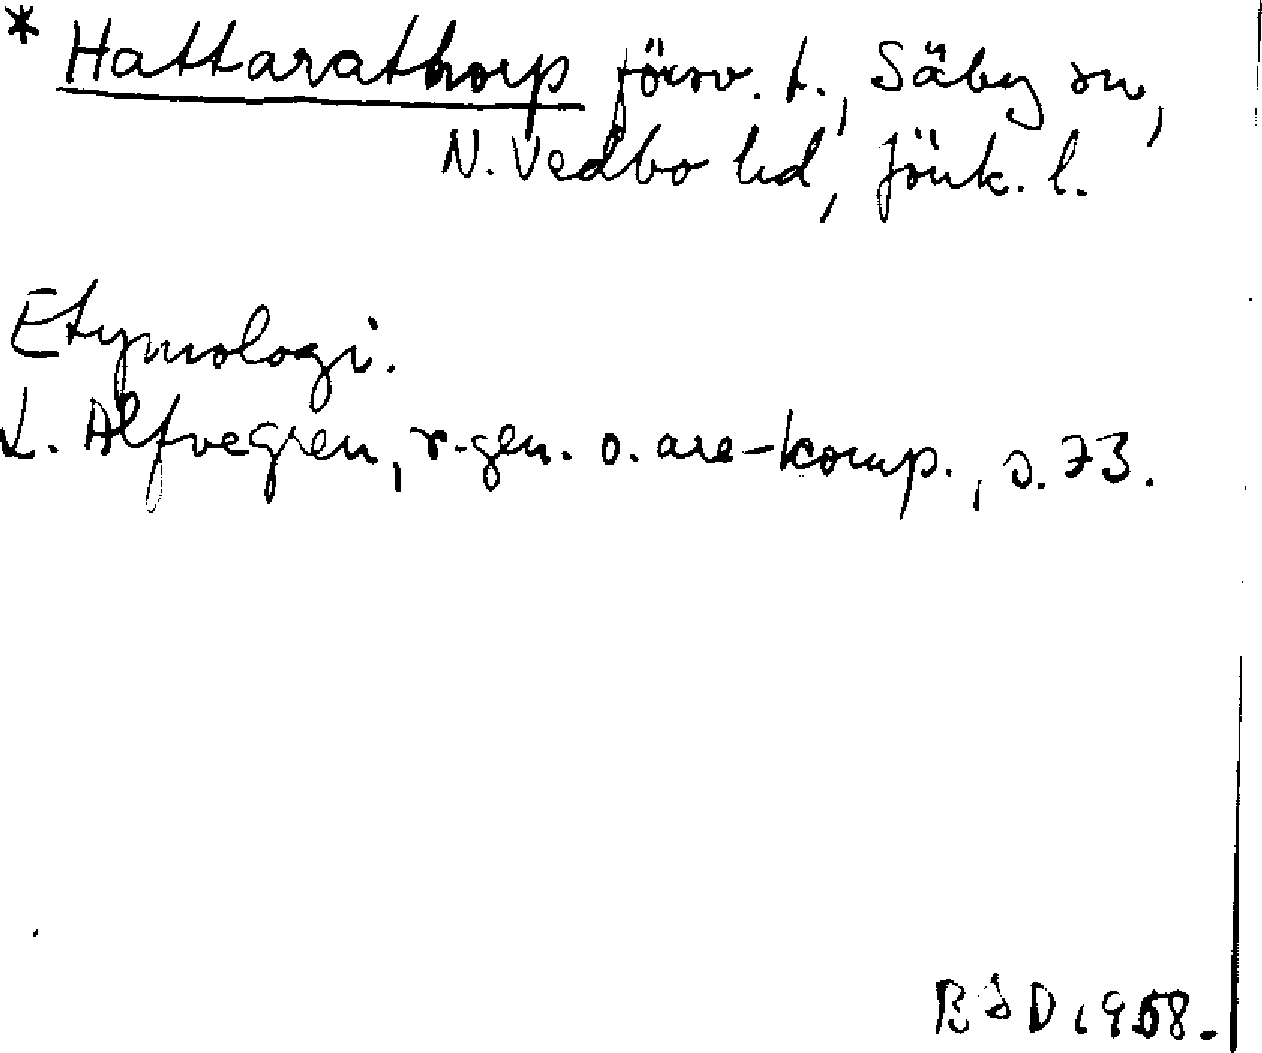 * Hattarathorp försv. t., Säby sn,
N. Vedbo hd, Jönk. l.
Etymologi.
L. Alfvegren, r-gen. o. are-komp., s. 73.
BSD 1958.